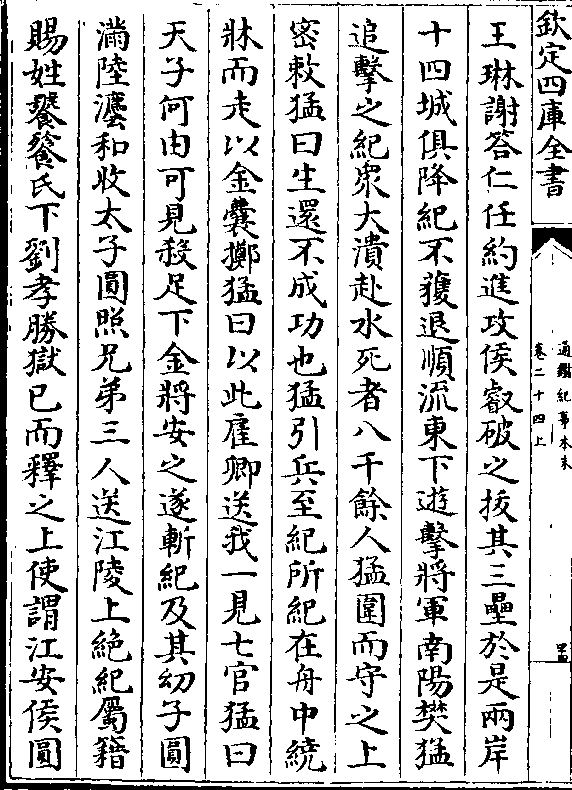 欽定四庫全書
通鑑紀事本末
卷二十四上
王琳謝答仁任約進攻侯叡破之拔其三壘於是兩岸
十四城俱降紀不獲退順流東下遊擊將軍南陽樊猛
追擊之紀衆大潰赴水死者八千餘人猛圍而守之上
密敕猛曰生還不成功也猛引兵至紀所紀在舟中繞
牀而走以金囊擲猛曰以此雇卿送我一見七官猛曰
天子何由可見殺足下金將安之遂斬紀及其幼子圓
滿陸灋和收太子圓照兄弟三人送江陵上絶紀屬籍
賜姓饕餮氏下劉孝勝獄已而釋之上使謂江安侯圓